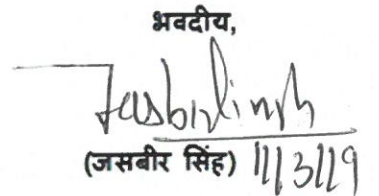 भवदीय,
Jasbirsingh
(जसबीर सिंह) 11/3/19